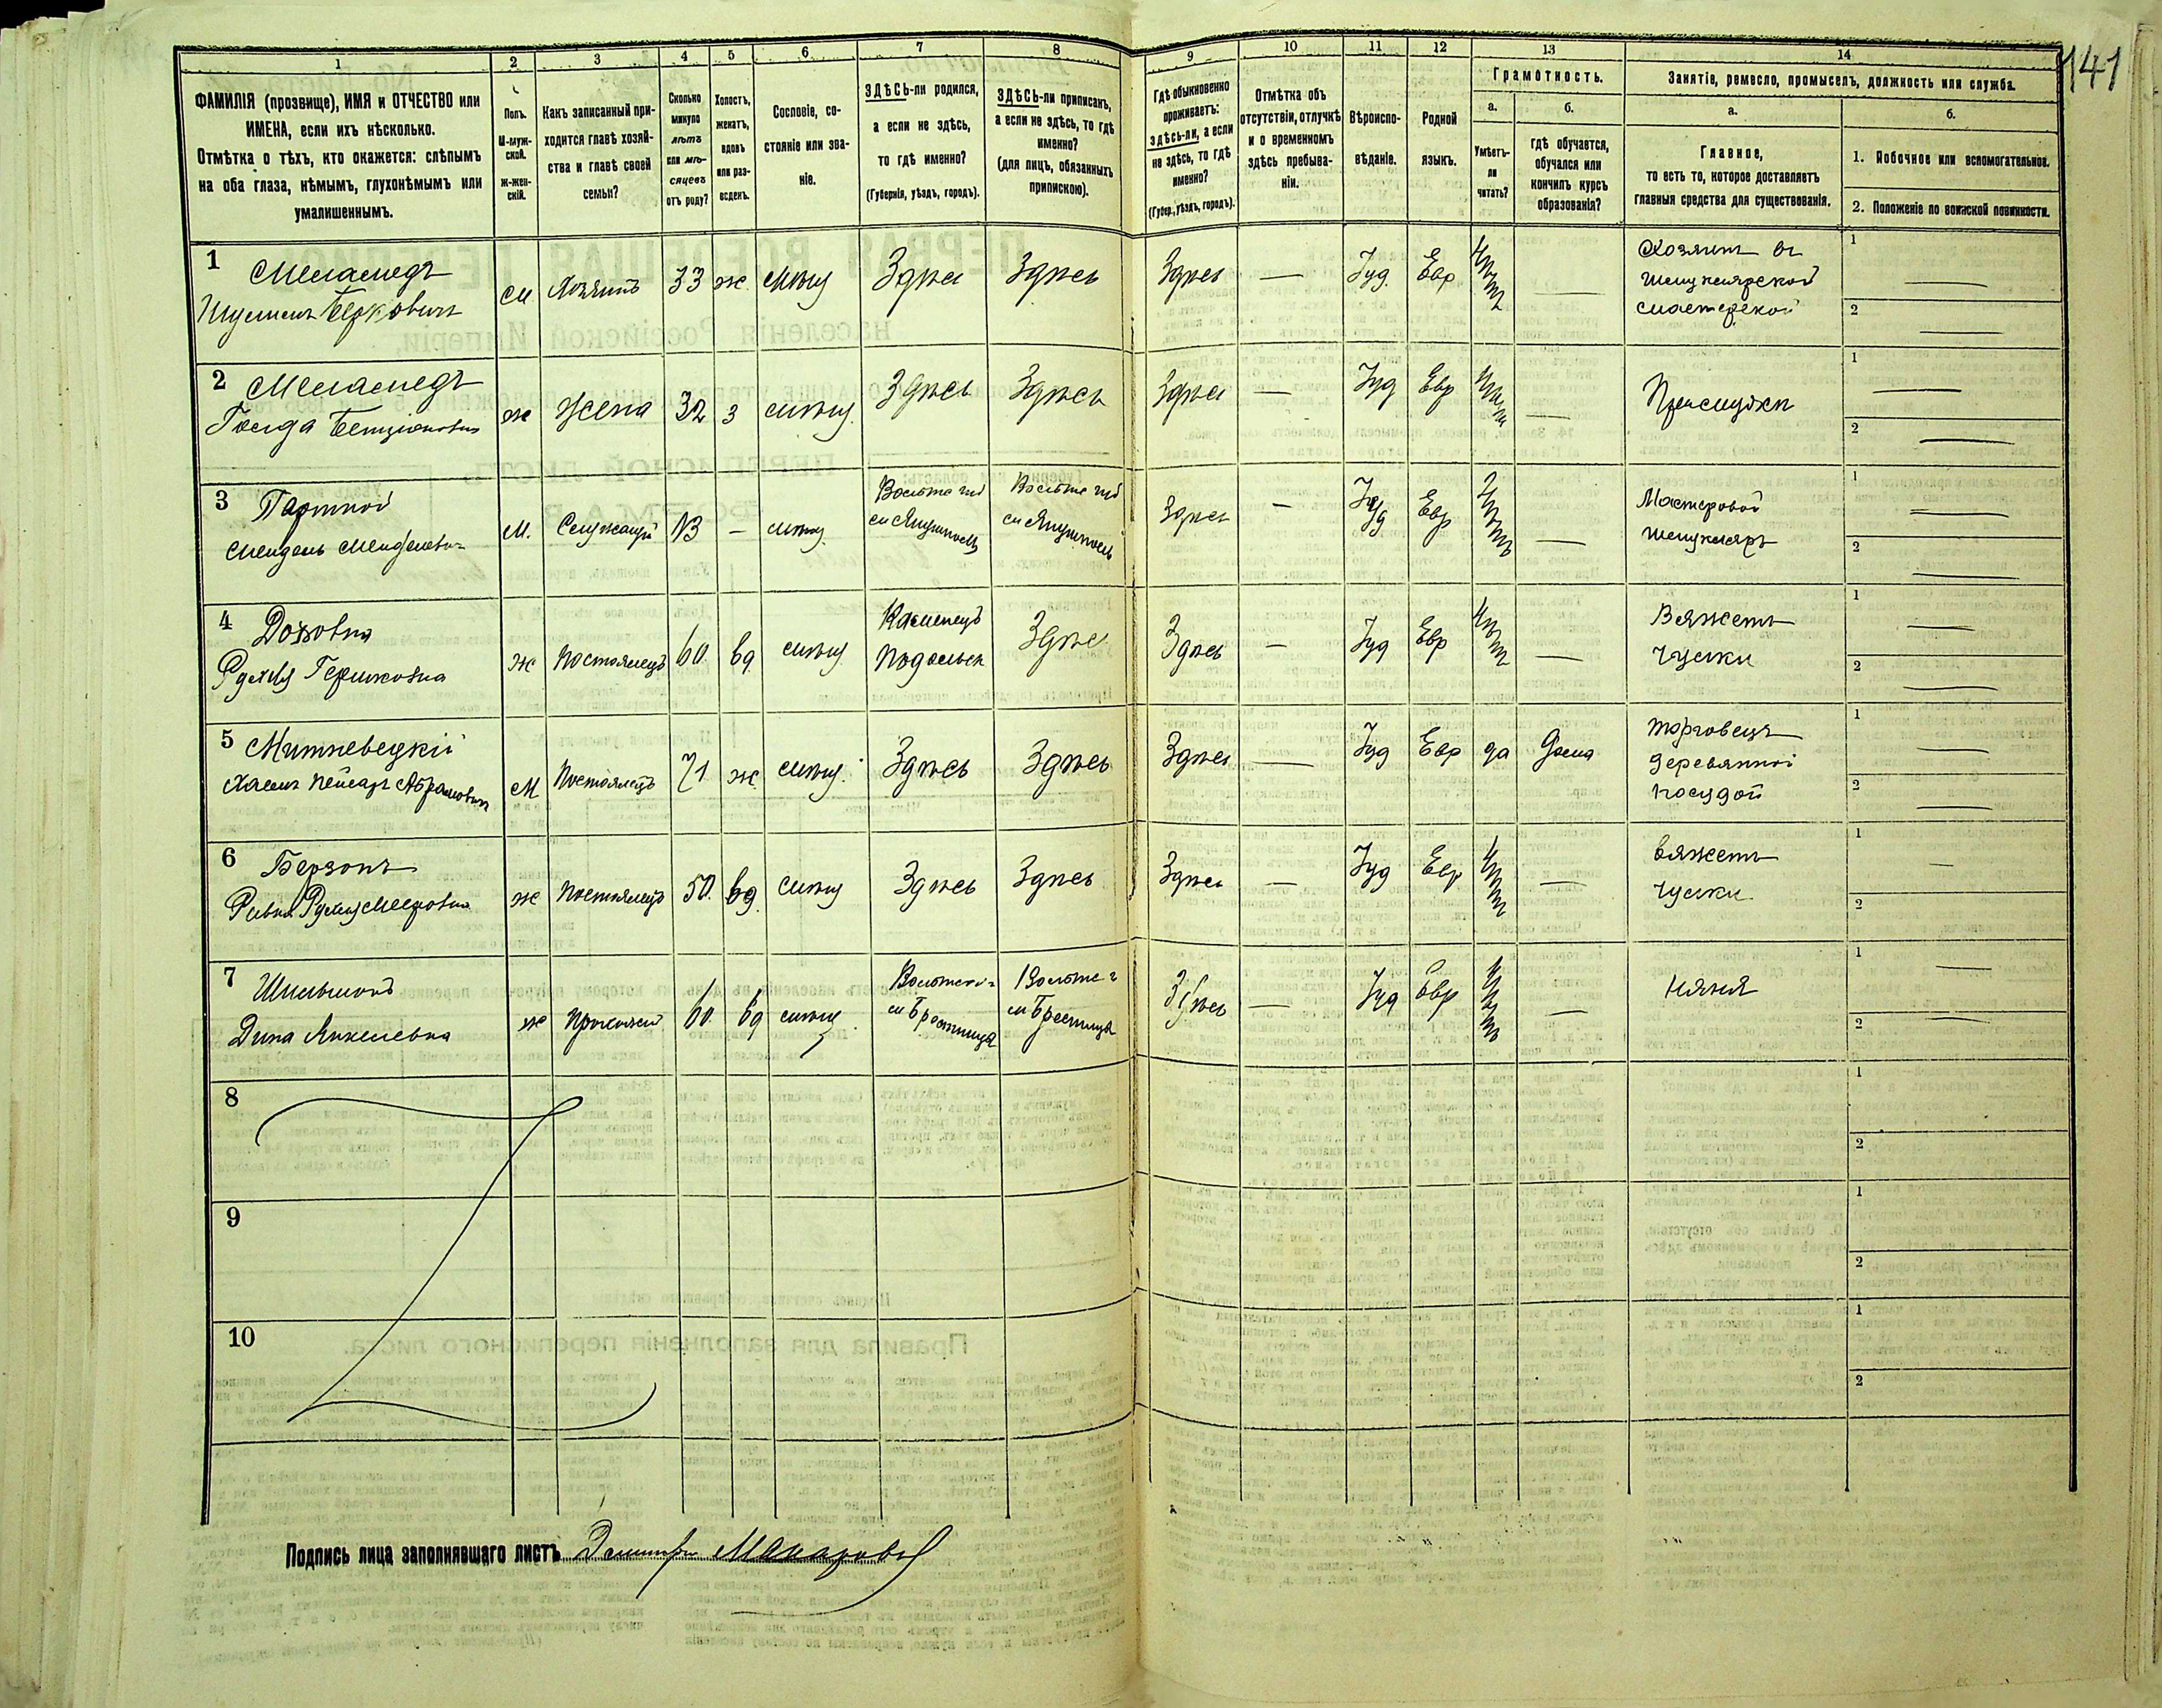 141
1 2 3 4 5 6 7 8 9 10 11 12 13 14
ФАМИЛІЯ (прозвище), ИМЯ и ОТЧЕСТВО или
ИМЕНА, если ихъ нѣсколько.
Отмѣтка о тѣхъ, кто окажется: слѣпымъ
на оба глаза, нѣмымъ, глухонѣмымъ или
умалишеннымъ.
Полъ.
М-муж-
ской.
Ж-жен-
скій.
Какъ записанный при-
ходится главѣ хозяй-
ства и главѣ своей
семьи?
Сколько
минуло
лѣтъ
или мѣ-
сяцевъ
отъ роду?
Холостъ,
женатъ,
вдовъ
или раз-
веденъ.
Сословіе, со-
стояніе или зва-
ніе.
ЗДѢСЬ-ли родился,
а если не здѣсь,
то гдѣ именно?
(Губернія, уѣздъ, городъ).
ЗДѢСЬ-ли приписанъ,
а если не здѣсь, то гдѣ
именно?
(для лицъ, обязанныхъ
припискою).
Гдѣ обыкновенно
проживаетъ:
здѣсь-ли, а если
не здѣсь, то гдѣ
именно?
(Губер., уѣздъ, городъ).
Отмѣтка объ
отсутствіи, отлучкѣ
и о временномъ
здѣсь пребыва-
ніи.
Вѣроиспо-
вѣданіе.
Родной
языкъ.
Грамотность.
а.
Умѣетъ-
ли
читать?
б.
Гдѣ обучается,
обучался или
кончилъ курсъ
образованія?
Занятіе, ремесло, промыселъ, должность или служба.
а.
Главное,
то есть то, которое доставляетъ
главныя средства для существованія.
б.
1. Побочное или вспомогательное.
2. Положеніе по воинской повинности.
1 Меламедъ
Шулимъ Берковичъ
м Хозяинъ 33 ж. мѣщ Здѣсь Здѣсь Здѣсь — Іуд. Евр нѣтъ —
Хозяинъ въ
шмуклярской
мастерской
1 —
2 —
2 Меламедъ
Голда Бенціоновна
ж жена 32 з мѣщ. Здѣсь Здѣсь Здѣсь — Іуд Евр нѣтъ —
При мужѣ
1 —
2 —
3 Портной
Мендель Менделевичъ
м. Служащій 13 — мѣщ.
Здѣсь — Іуд Евр нѣтъ —
Мастеровой
шмукляръ
1 —
2 —
4
Рухля Гершковна
ж Постоялецъ 60 вд. мѣщ
Каменецъ
Подольск
Здѣсь Здѣсь — Іуд Евр нѣтъ —
Вяжетъ
чулки
1 —
2 —
5 Митневецкій
Хаимъ Пейсахъ Абрамовичъ
м Постоялецъ 71 ж мѣщ. Здѣсь Здѣсь Здѣсь — Іуд Евр да Дома
Торговецъ
деревянной
посудой
1 —
2 —
6 Берзонъ
ж Постоялецъ 50. вд. мѣщ Здѣсь Здѣсь Здѣсь — Іуд Евр нѣтъ —
вяжетъ
чулки
1 —
2 —
7 Шильманъ
Дина Янкелевна
ж 60. вд мѣщ
Здѣсь — Іуд Евр нѣтъ —
няня
1 —
2 —
8
1
2
9
1
2
10
1
2
Подпись лица заполнявшаго листъ Димитри Макаровъ